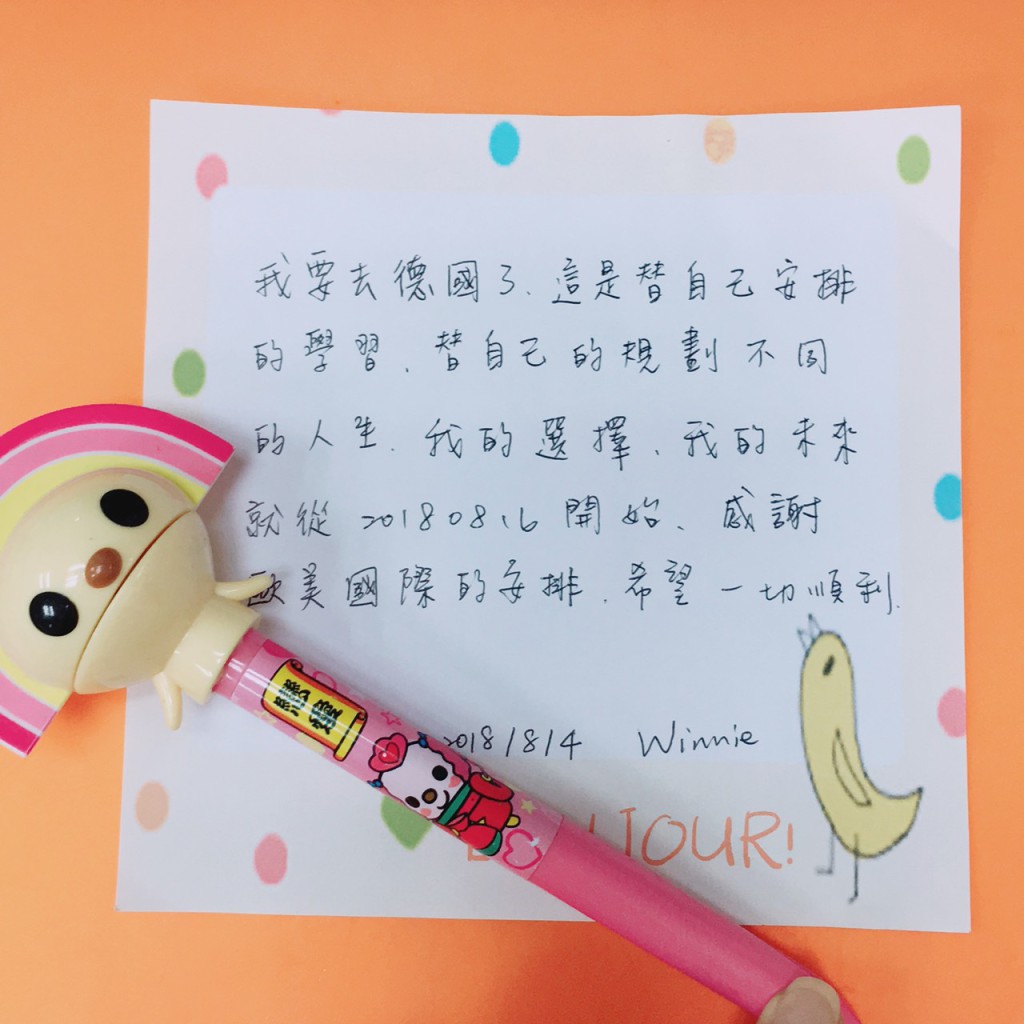 我要去德國了、這是替自己安排
的學習、替自己的規劃不同
的人生、我的選擇、我的未來
就從 20180816 開始、感謝
歐美國際的安排、希望一切順利.
2018/8/4 Winnie
JOUR!